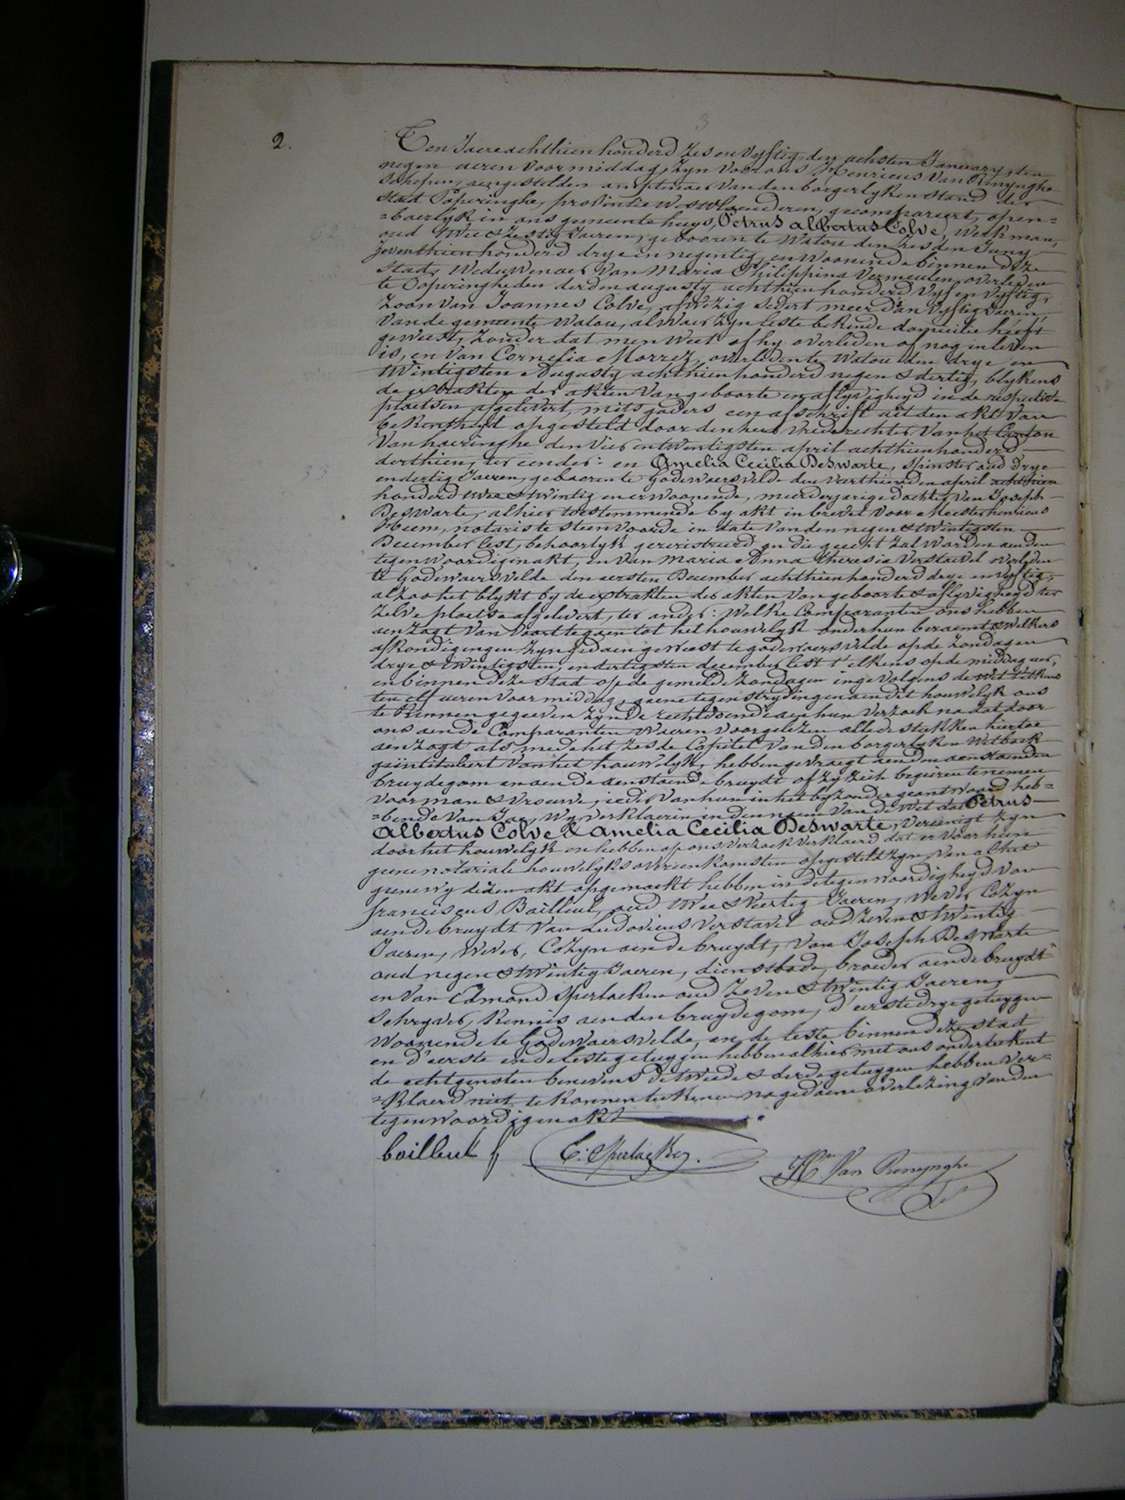 3
2.
Ten Jaere achthien honderd Zes en Vyftig den achsten January ten
negen ueren Voormiddag, Zyn Voor ons Henricus Van Renynghe
Schepen, aengestelden amptenaer Van den borgerlyken Stand der
Stad Poperinghe, provintie Westvlaenderen, gecompareert, open=
=baerlyk in ons gemeente huys, Petrus albertus Colve, Werkman,
oud twee & Zestig Jaeren, gebooren te Watou den Zesden Juny
Zeventhien honderd drye en negentig, en Woonende binnen deze
Stad, Weduwenaer Van Maria Philippina Vermeulen, overleden
te Poperinghe den derden augusty achthien honderd Vyf en Vyftig,
Zoon Van Joannes Colve, afwezig Sedert meer dan Vyftig Jaeren
Van de gemeente Watou, alwaer Zyn leste bekende domicilie heeft
geweest, Zonder dat men Weet of hy overleden of nog in leven
is, en Van Cornelia Morrez, overleden te Watou den drye en
twintigsten Augusty achthien honderd negen & dertig, blykens
de extrakten der akten Van geboorte en aflyvigheyd in de respective
plaetsen afgelevert, mitsgaders een afschrift uit den akt Van
bekendheid opgesteld door den heer Vrederechter Van het Canton
Van haeringhe den Vier en twintigsten april achthien honderd
derthien, ter eender: en Amelia Cecilia Deswarte, Spinster oud drye
en dertig Jaeren, gebooren te Godewaersvelde den Veerthienden april achthien
honderd twee & twintig en er Woonende, meerderjarige dochter Van Joseph
Deswarte, alhier toestemmende by akt in brevet Voor Meester henricus
Heem, notaris te Steenvoorde in date Van den negen & twintigsten
December lest, behoorlyk geregistreerd en die gehecht Zal worden aen den
tegenwoordigen akt, en Van Maria Anna theresia Verstavel overleden
te Godewaersvelde den eersten December achthien honderd drye en Vyftig,
alzoo het blykt by de extrakten des akten Van geboorte & aflyvigheyd ter
Zelve plaetse afgelevert, ter ander: Welke Comparanten ons hebben
aenzogt Van Voort te gaen tot het houwelyk onder hun beraemt & Welkers
afkondigingen Zyn gedaen geweest te godewaersvelde op de Zondagen
drye & twintigsten, en dertigsten december lest t'elkens op de middag uer,
en binnen deze Stad op de gemelde Zondagen ingevolgens de Wet t'elkens
ten elf ueren Voormiddag, geene tegenstrydingen aen dit houwelyk ons
te kennen gegeven Zynde rechtdoende aen hun Verzoek na dat door
ons aen de Comparanten Waeren Voorgelezen alle de stukken hiertoe
aenzogt als mede het Zesde Capitel Van den borgerlyken Wetboek
geintituleert Van het houwelyk, hebben gevraegt aen den aenstaenden
bruydegom en aen de aenstaende bruydt of Zy Zich begeiren te nemen
Voor man & Vrouwe, ieder Van hun in het byzonder geantwoord heb=
=bende Van Jae, Wy Verklaeren in den naem Van de Wet dat Petrus
Albertus Colve & Amelia Cecilia Deswarte, Vereenigt Zyn
door het houwelyk en hebben op ons Verzoek Verklaerd dat er Voor hun
geene notariale houwelyks overeenkomsten opgesteld Zyn, Van al het
gene wy dezen akt opgemaekt hebben in de tegenwoordigheyd Van
franciscus Bailleul, oud twee & Veertig Jaeren, Wever Cozyn
aen de bruydt Van Ludovicus Verstavel oud Zeven & twintig
Jaeren, Wever, Cozyn aen de bruydt, Van Joseph Deswarte
oud negen & twintig Jaeren, dienstbode, broeder aen de bruydt
en Van Edmond Sperlaeken oud Zeven & twintig Jaeren,
Schryver, Kennis aen den bruydegom, d'eerste drye getuygen
Woonende te Godewaersvelde, en de leste binnen deze Stad
en d'eerste en de leste getuygen hebben alhier met ons onderteekent
de echtgenoten benevens de tweede & derde getuygen hebben Ver=
=klaerd niet te konnen teekenen na gedaene overlezing Van den
tegenwoordigen akt
bailleul f
H.ri Van Renynghe